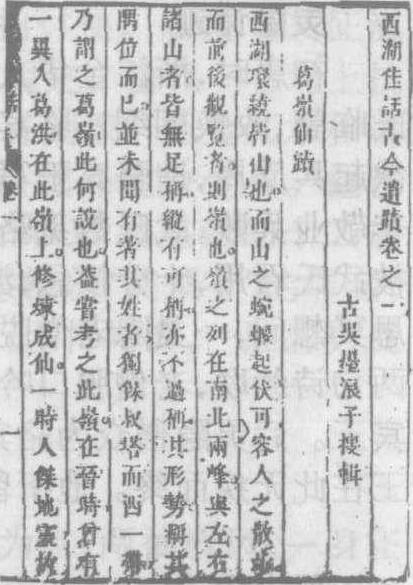 西湖佳話古今遺蹟卷之一
古吳墨浪子搜輯
葛嶺仙蹟
西湖環繞皆山也而山之蜿蜒起伏可容人之散步
而前後觀覽者則嶺也嶺之列在南北兩峰與左右
諸山者皆無足稱縱有可稱亦不過稱其形勢稱其
隅位而已並未聞有著其姓者獨保叔塔而西一帶
乃謂之葛嶺此何說也蓋嘗考之此嶺在晉時曾有
一異人葛洪在此嶺上修煉成仙一時人傑地靈故
卷一
一